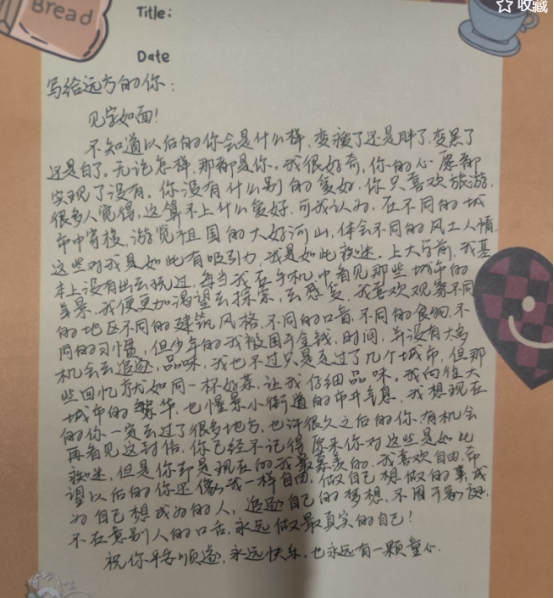 ☆ 收藏
Bread
Title:
Date
写给远方的你:
见字如面!
不知道以后的你会是什么样,变瘦了还是胖了,变黑了
还是白了。无论怎样,那都是你。我很好奇,你的心愿都
实现了没有。你没有什么别的爱好,你只喜欢旅游,
很多人觉得,这算不上什么爱好,可我认为,在不同的城
市中穿梭,游览祖国的大好河山,体会不同的风土人情,
这些对我是如此有吸引力,我是如此被迷。上大学前,我基
本上没有出去玩过,每当我在手机中看见那些城市的
美景,我便更加渴望去探索,去感受,我喜欢观察不同
的地区不同的建筑风格,不同的口音,不同的食物,不
同的习惯,但少年的我被困于金钱,时间,并没有太多
机会去追逐,品味,我也不过只是走过了几个城市,但那
些回忆就如同一杯好茶,让我仔细品味。我向往大
城市的繁华,也憧憬小街道的市井气息,我想现在
的你一定去过了很多地方,也许很久之后的你,有机会
再看见这封信,你已经不记得原来你对这些是如此
被迷,但是你却是现在的我最羡慕的,我喜欢自由,希
望以后的你还像我一样自由,做自己想做的事,成
为自己想成为的人,追逐自己的梦想,不用
不在意别人的口舌,永远做最真实的自己!
祝你平安顺遂,永远快乐,也永远有一颗童心.